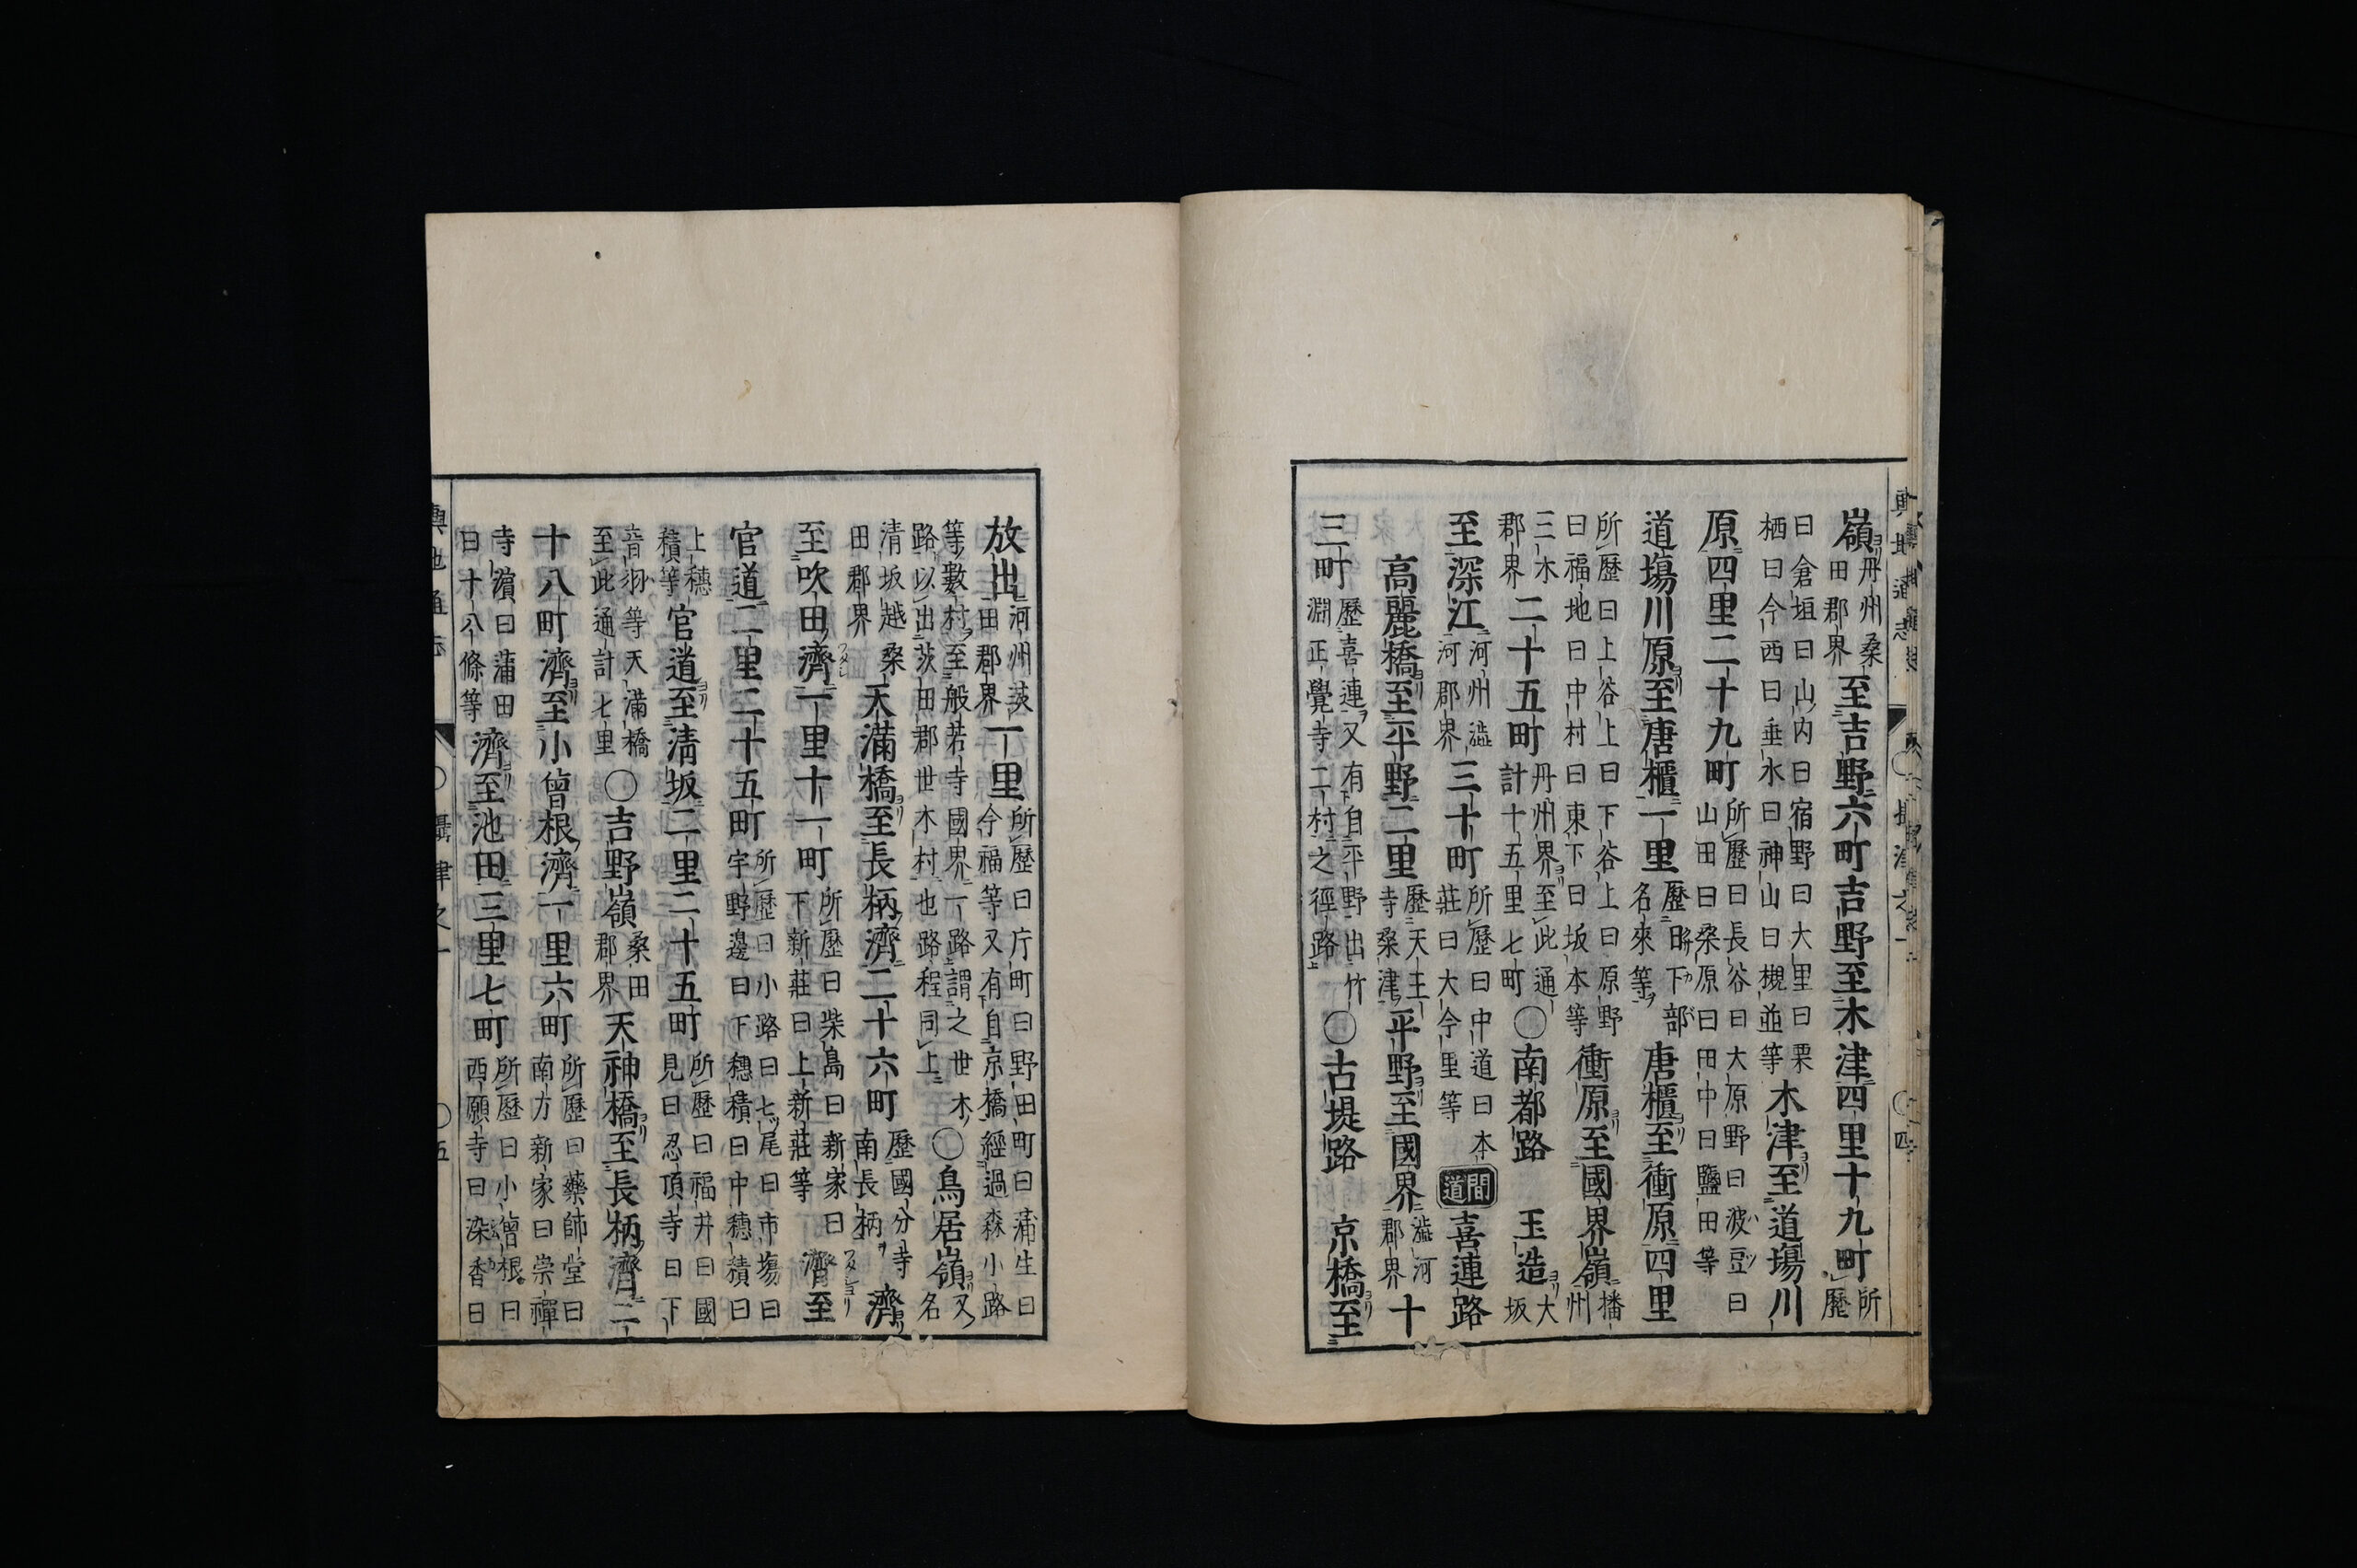 嶺丹州桑田郡界至吉野六町吉野至木津四里十九町所歷
曰倉垣曰山内曰宿野曰大里曰栗栖曰今西曰垂水曰神山曰槻並等木津至道場川
原四里二十九町所歷曰長谷曰大原野曰波豆曰山田曰桑原曰田中曰鹽田等
道塲川原至唐櫃一里歷日下部名來等唐櫃至衝原四里
所歷曰上谷上曰下谷上曰原野曰福地曰中村曰東下曰坂本等衝原至國界嶺播州
三木郡界二十五町丹州界至此通計十五里七町〇南都路 玉造大坂
至深江河州澁河郡界三十町所歷曰中道曰本莊曰大今里等 間道 喜連路
高麗橋至平野二里歷天王寺桑津平野至國界澁河郡界十
三町歷喜連又有自平野出竹淵正覺寺二村之徑路〇古堤路 京橋至
放出河州茨田郡界一里所歷曰疔町曰野田町曰蒲生曰今福等又有自京橋經過森小路
等數村至般若寺國界一路謂之世木路以出茨田郡世木村也路程同上〇鳥居嶺又名
清坂越桑田郡界天滿橋至長柄濟二十六町歷國分寺南長柄濟
至吹田濟一里十一町所歷曰柴島曰新家曰下新莊曰上新莊等濟至
官道二里二十五町所歷曰小路曰七尾曰市塲曰宇野邊曰下穗積曰中穗積曰
上穗積等官道至清坂二里二十五町所歷曰福井曰國見曰忍頂寺曰下
音羽等天滿橋至此通計七里〇吉野嶺桑田郡界天神橋至長柄濟二
十八町濟至小曾根濟一里六町所歷曰藥師堂曰南方新家曰崇禪
寺濵曰蒲田曰十八條等濟至池田三里七町所歷曰小曾根曰西願寺曰深香曰
輿地通志 〇攝津之一 〇五